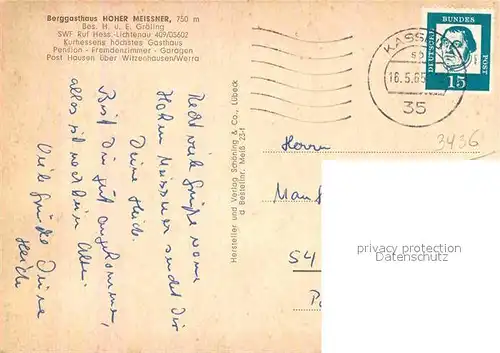 Berggasthaus HOHER MEISSNER, 750 m
Bes. H. u. E. Gräling
SWF Ruf Hess.-Lichtenau 409/05602
Kurhessens höchstes Gasthaus
Pension - Fremdenzimmer - Garagen
Post Hausen über Witzenhausen/Werra
Recht viele Grüße vom
Hohen Meissner sendet Dir
Deine Heidi.
Bist Du gut angekommen,
alles ist noch beim Alten.
Viele Grüße Deine
Heidi
Hersteller und Verlag Schöning & Co., Lübeck
Bestellnr. Meiß 254
DEUTSCHE
BUNDES
POST
15
KASSEL
16.5.65
35
3436
Herrn
Manf
54
privacy protection
Datenschutz